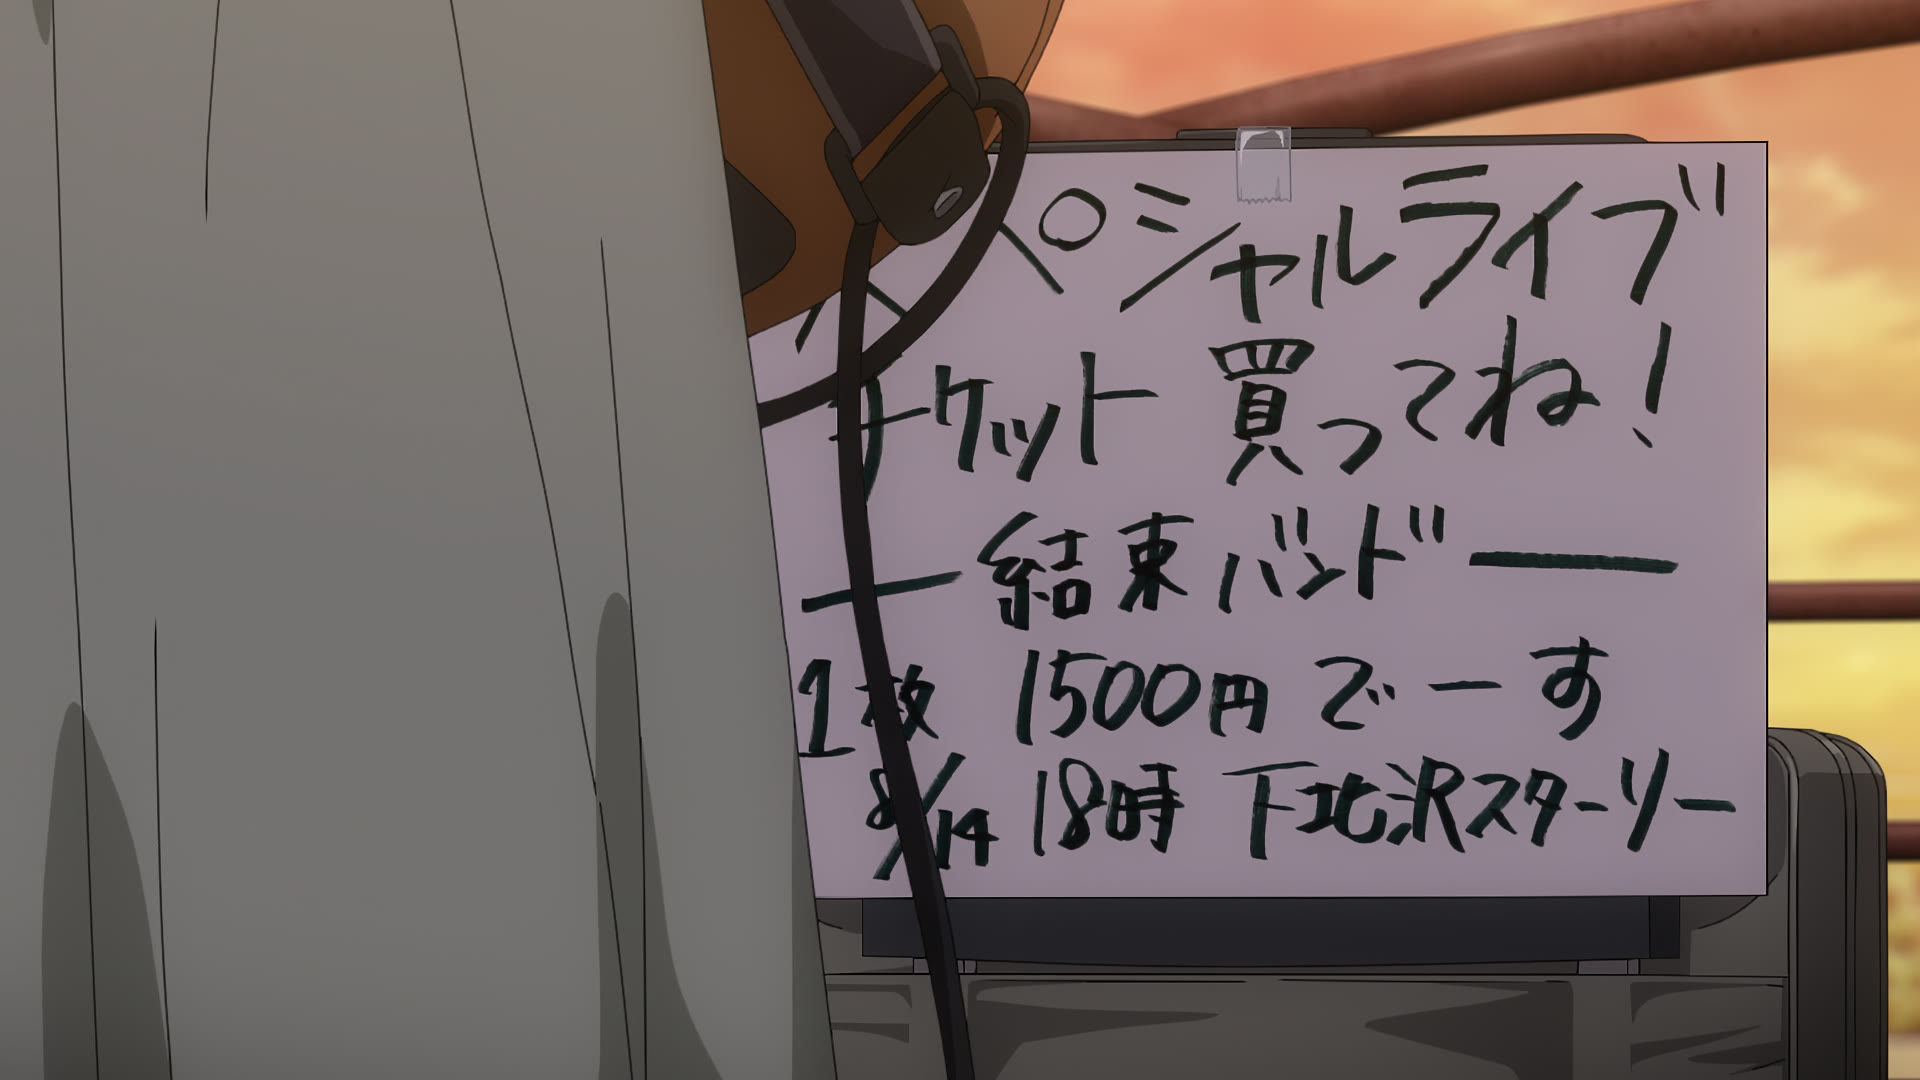 スペシャルライブ
チケット 買ってね!
― 結束バンド ―
1枚 1500円 でーす
8/14 18時 下北沢スターリー